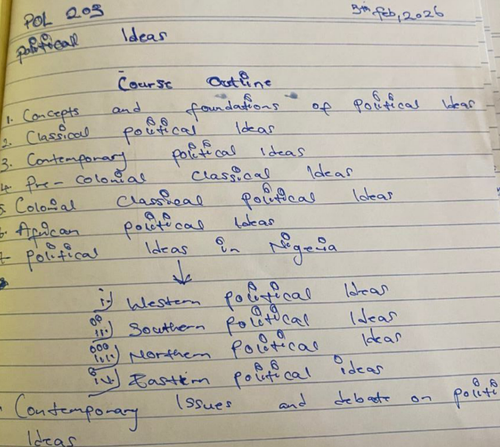 POL 203
5th Feb, 2026
political Ideas
Course Outline
1. Concepts and foundations of political Ideas
2. Classical political Ideas
3. Contemporary political Ideas
4. Pre-colonial classical Ideas
5. Colonial classical political Ideas
6. African political Ideas
7. political Ideas in Nigeria
i) Western political Ideas
ii) Southern political Ideas
iii) Northern political Ideas
iv) Eastern political ideas
Contemporary Issues and debate on politi
Ideas